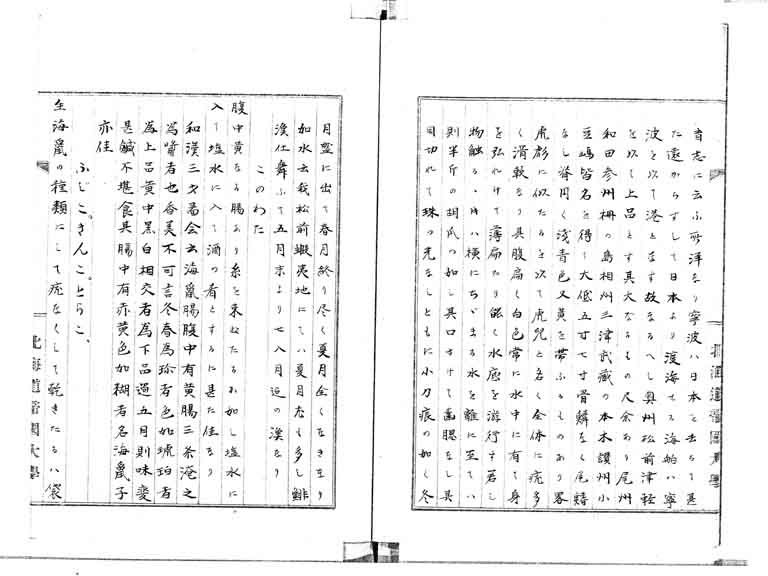 育志に云ふ所洋なり寧波ハ日本を去ちて甚
た遠からすして日本より渡海せる海舶ハ寧
波を以て港となす故なるへし奥州松前津軽
を以て上品とす其大なるもの尺余あり尾州
和田参州柵の島相州三津武藏の本本讃州小
豆嶋皆名を得て大低五寸七寸骨鱗なく尾鰭
なし海円く浅青色又黄を帯ふるものあり畧
虎彪に似たるを以て虎児と名く全体に疣多
く滑軟なり具腹扁く白色常に水中に有て身
を弘れけて薄扁たり能く水底を游行す若し
物触るゝ時ハ横にちゞまる水を離に至てハ
則半斤の胡爪の如し具口さけて歯腮なし具
目切れて珠の光なしともに小刀痕の如く冬
月盛に出て春月終り尽く夏月全くなきなり
如水云我松前蝦夷地にてハ夏月尤も多し鯡
漁仕舞ふて五月末より七八月迄の漁なり
このわた
腹中黄なる腸あり糸を束ねたるか如し塩水に
入て塩水に入て酒の肴とするに甚た佳なり
和漢三才圖会云海鼠腸腹中有黄腸三条淹之
為醤者也香美不可言冬春為珍者色如琥珀者
為上品黄中黒白相交者為下品過五月則味変
甚鹹不堪食具腸中有赤黄色如糊者名海鼠子
亦佳
ふじこ。きんこ。とらこ、
生海鼠の種類にして疣なくして乾きたるハ袋
北海道帝国大學